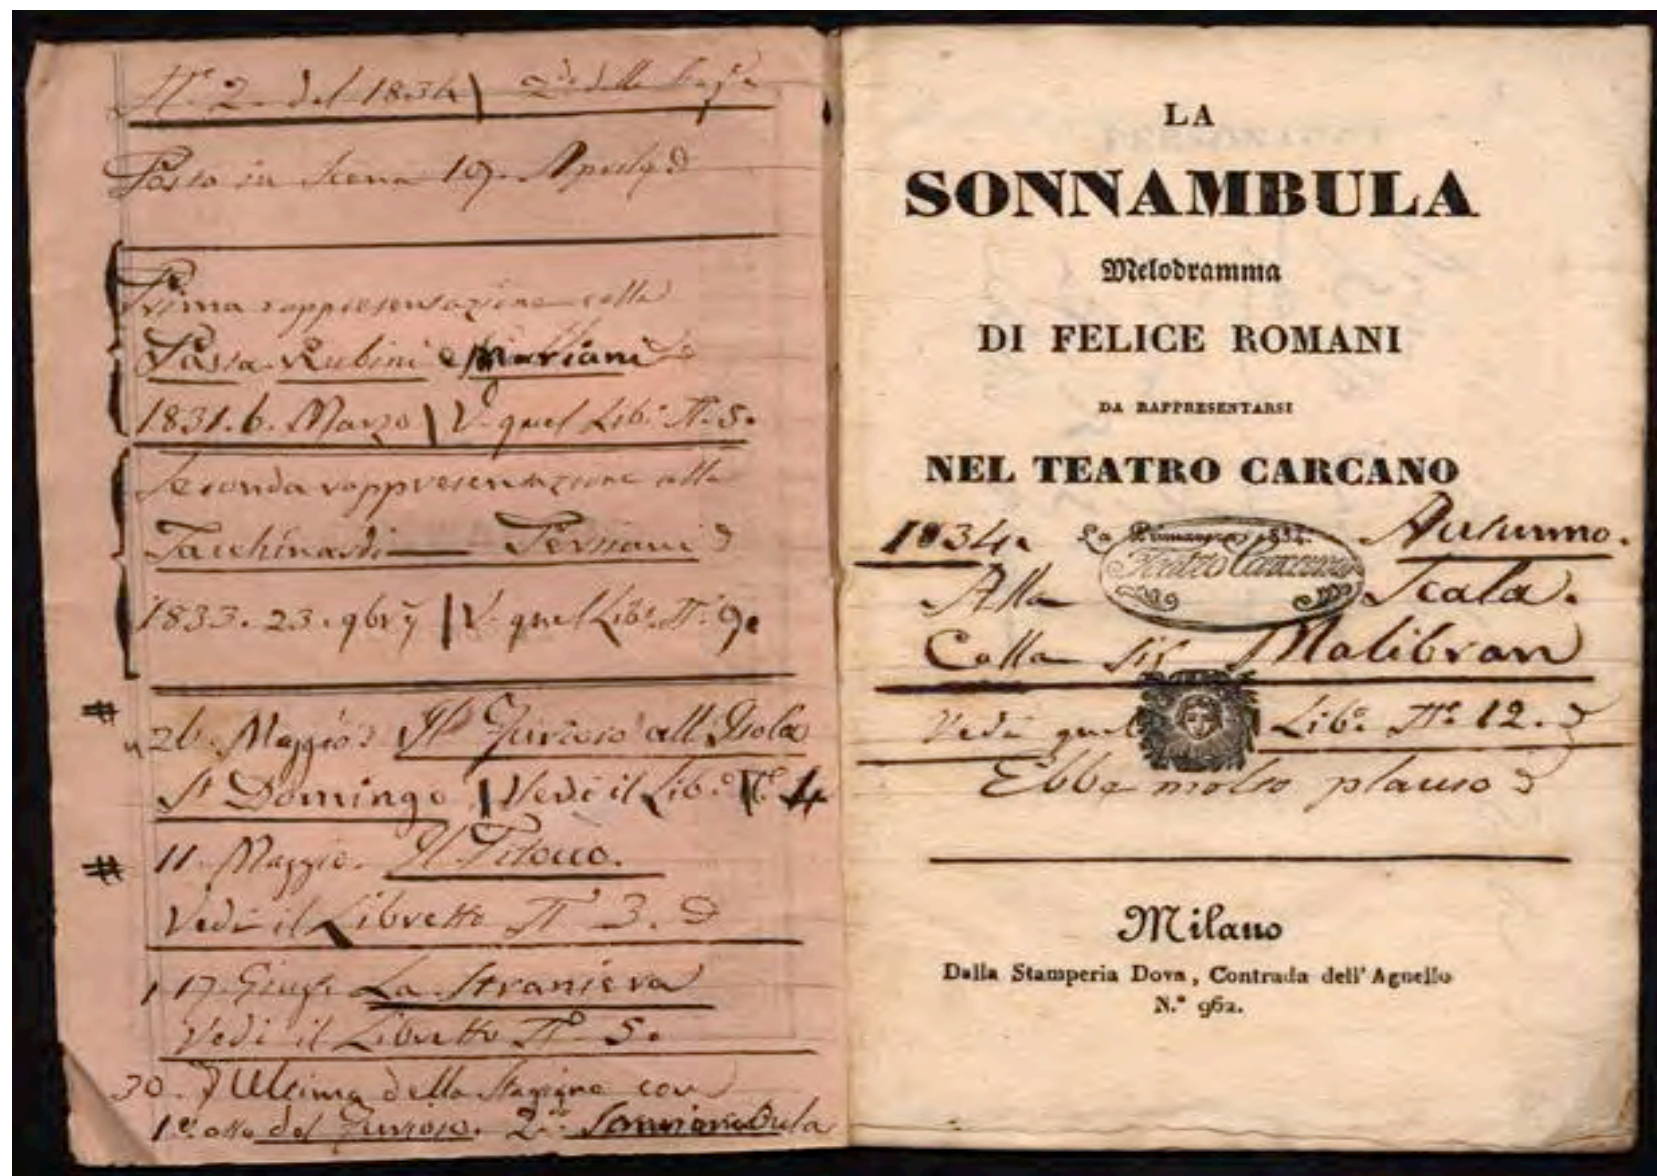 N.º 2. del 1834 | 2.da della
Posto in Scena 19. Aprile
Prima rappresentazione colla
Pasta Rubini e Mariani
1831. 6. Marzo | V. quel Lib.º N.º 5.
Seconda rappresentazione colla
Tacchinardi — Persiani
1833. 23. 9br | V. quel Lib.º N.º 9.
# 26. Maggio. Il Furioso all Isola
S. Domingo | Vedi il Lib.º N.º 4
# 11. Maggio. Il
Vedi il Libretto N.º 3.
17. Giug. La Straniera
Vedi il Libretto N.º 5.
30. Ultima della Stagione con
1.º atto del Furioso. 2.do Sonnambula
LA
SONNAMBULA
Melodramma
DI FELICE ROMANI
DA RAPPRESENTARSI
NEL TEATRO CARCANO
1834. La Primavera 1834. Autunno.
Teatro Carcano
Alla Scala.
Colla Sig Malibran
Vedi quel Lib.º N.º 12.
Ebbe molto plauso
Milano
Dalla Stamperia Dova, Contrada dell' Agnello
N.º 962.